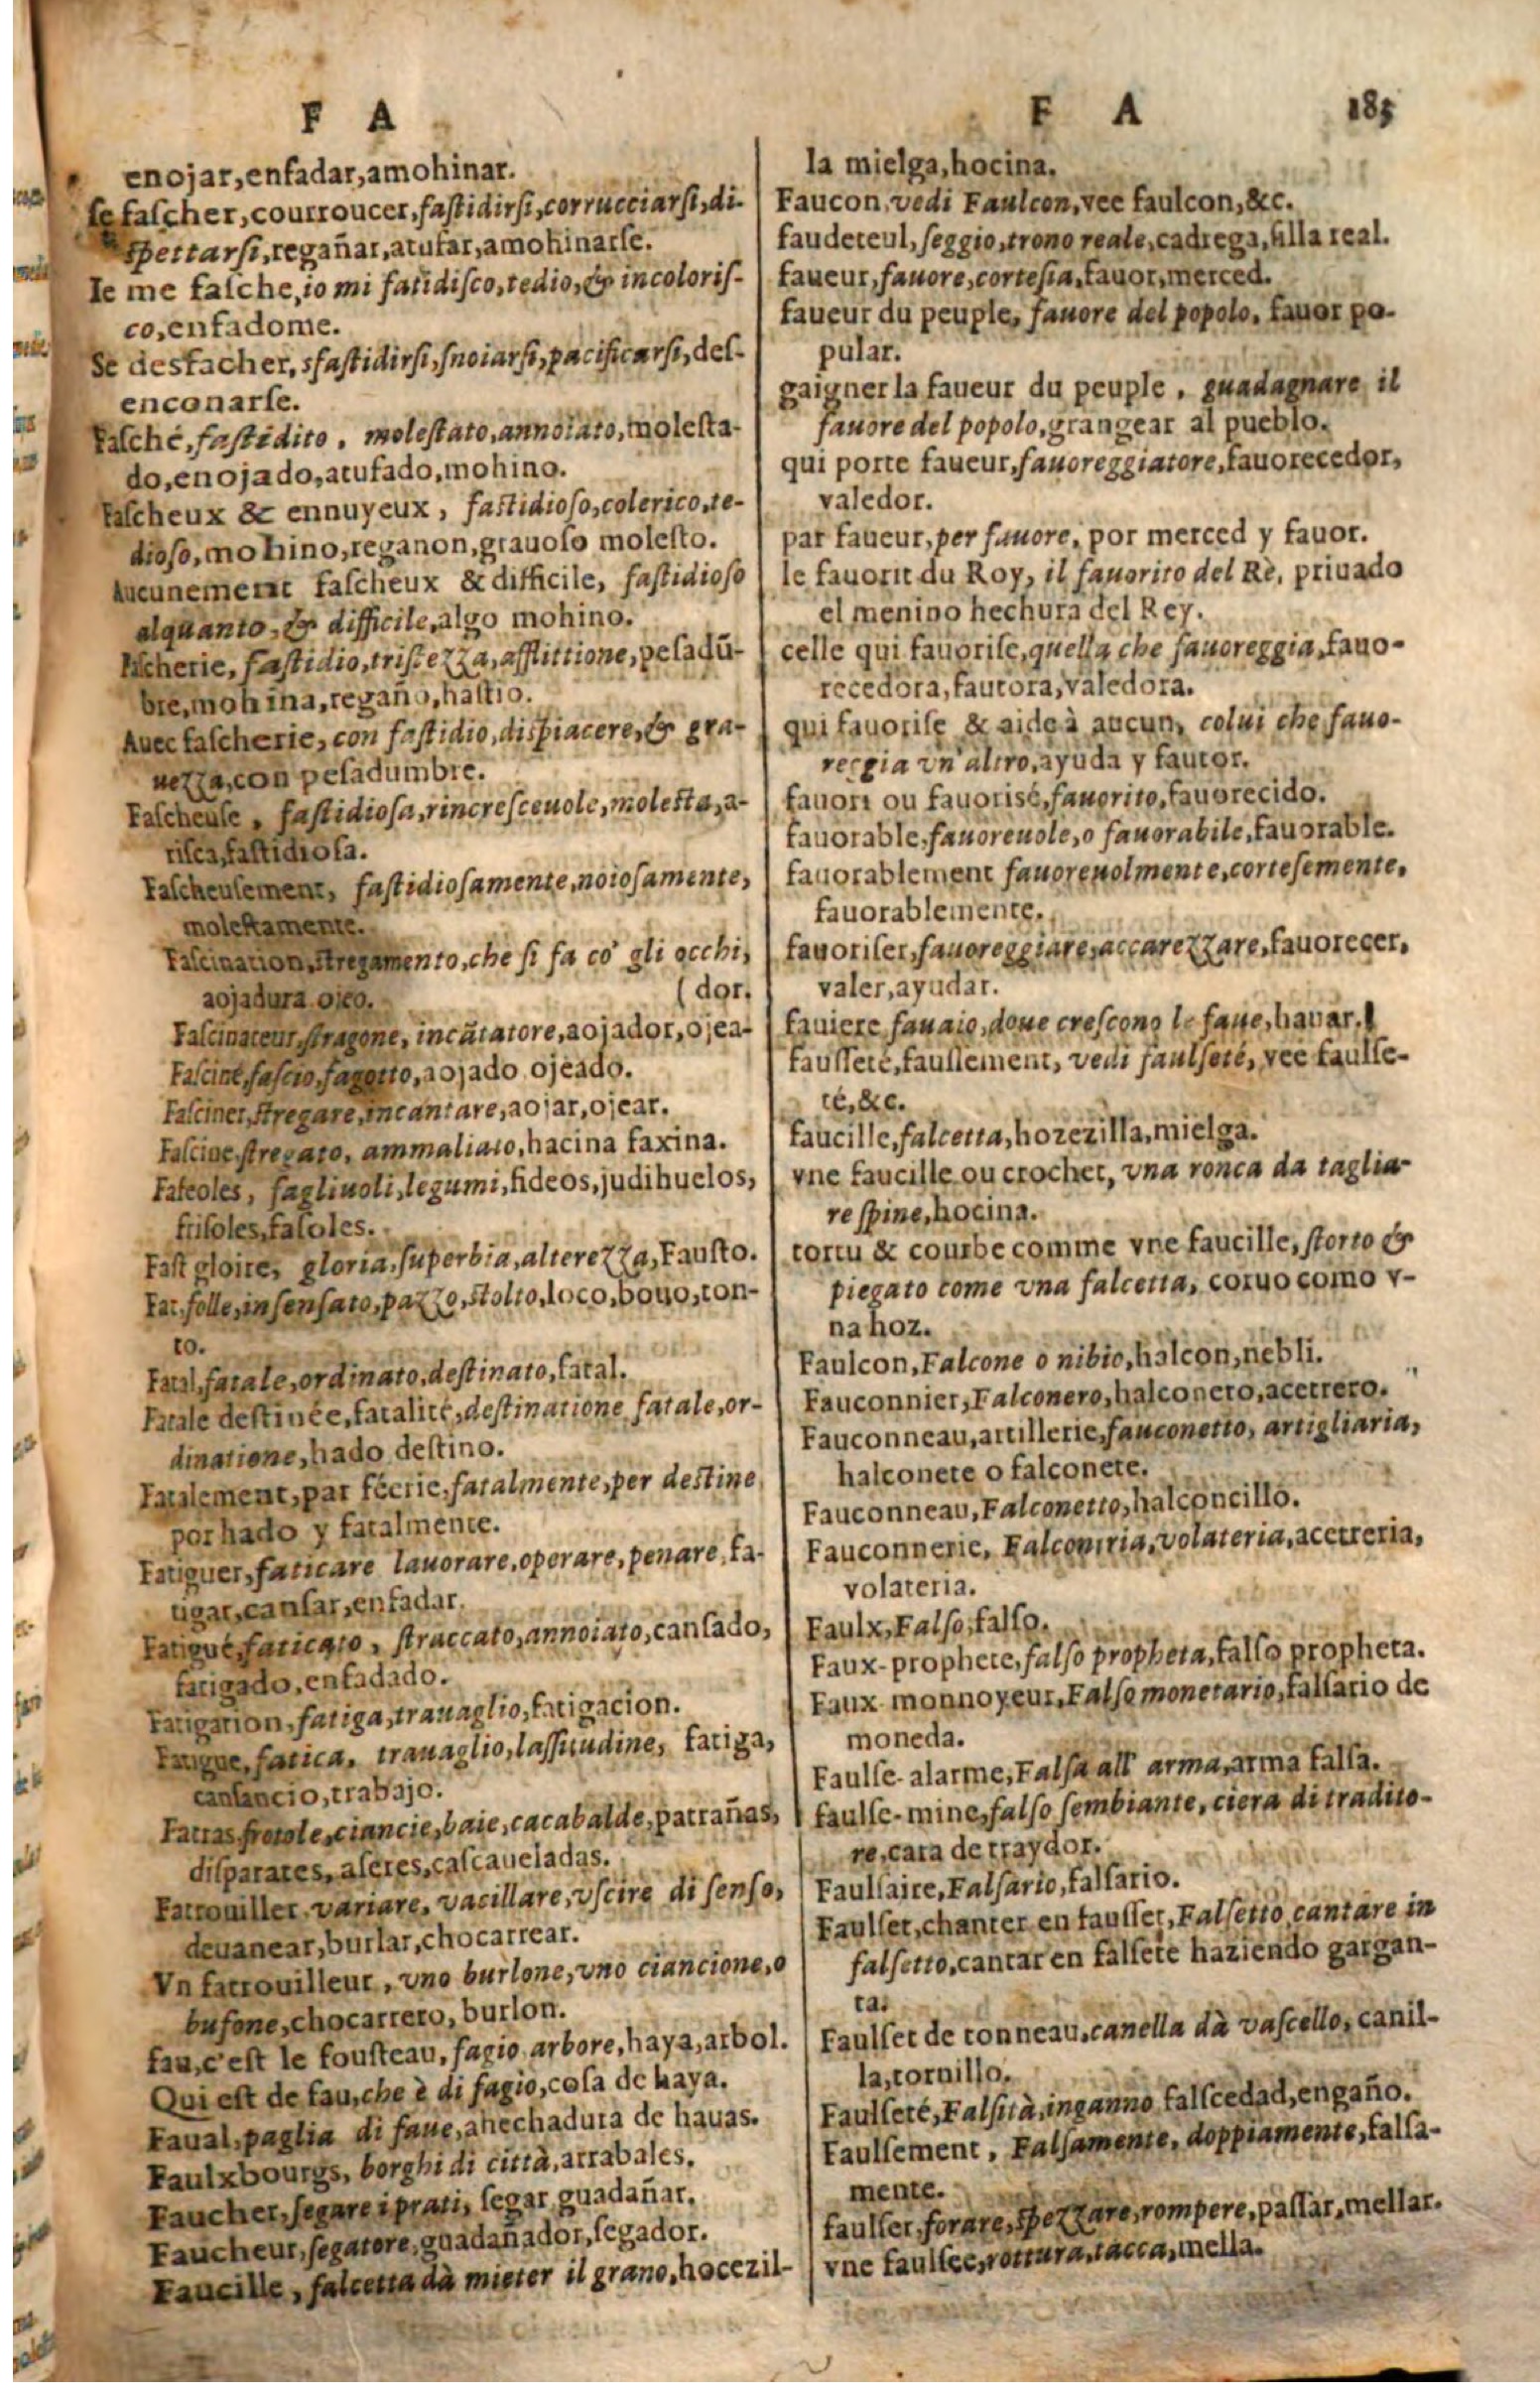 F A
enojar,enfadar,amohinar.
se fascher,courroucer,fastidirsi,corrucciarsi,di-
spettarsi,regañar,atufar,amohinarse.
Ie me fasche,io mi fatidisco,tedio,& incoloris-
co,enfadome.
Se desfacher, sfastidirsi,snoiarsi,pacificarsi,des-
enconarse.
Fasché,fastidito, molestato,annoiato,molesta-
do,enojado,atufado,mohino.
Fascheux & ennuyeux, fastidioso,colerico,te-
dioso,mohino,reganon,grauoso molesto.
Aucunement fascheux & difficile, fastidioso
alquanto,& difficile,algo mohino.
Fascherie, fastidio,tristezza,afflittione,pesadũ-
bre,mohina,regaño,hastio.
Auec fascherie,con fastidio,dispiacere,& gra-
uezza,con pesadumbre.
Fascheuse, fastidiosa,rincresceuole,molesta,a-
risca,fastidiosa.
Fascheusement, fastidiosamente,noiosamente,
molestamente.
Fascination,stregamento,che si fa co' gli occhi,
aojadura ojeo. (dor.
Fascinateur,stragone, incãtatore,aojador,ojea-
Fasciné,fascio,fagotto,aojado ojeado.
Fasciner,stregare,incantare,aojar,ojear.
Fascine,stregato, ammaliato,hacina faxina.
Faseoles, fagliuoli,legumi,fideos,judihuelos,
frisoles,fasoles.
Fast gloire, gloria,superbia,alterezza,Fausto.
Fat,folle,insensato,pazzo,stolto,loco,bouo,ton-
to.
Fatal,fatale,ordinato,destinato,fatal.
Fatale destinée,fatalité,destinatione fatale,or-
dinatione,hado destino.
Fatalement,par féerie,fatalmente,per destine
por hado y fatalmente.
Fatiguer,faticare lauorare,operare,penare,fa-
tigar,cansar,enfadar.
Fatigué,faticato, straccato,annoiato,cansado,
fatigado,enfadado.
Fatigation,fatiga,trauaglio,fatigacion.
Fatigue,fatica, trauaglio,lassitudine, fatiga,
cansancio,trabajo.
Fatras,frotole,ciancie,baie,cacabalde,patrañas,
disparates,aseres,cascaueladas.
Fatrouiller variare, vacillare,vscire di senso,
deuanear,burlar,chocarrear.
Vn fatrouilleur, vno burlone,vno ciancione,o
bufone,chocarrero,burlon.
fau,c'est le fousteau,fagio arbore,haya,arbol.
Qui est de fau,che è di fagio,cosa de haya.
Faual,paglia di faue,ahechadura de hauas.
Faulxbourgs, borghi di città,arrabales.
Faucher,segare i prati, segar guadañar.
Faucheur,segatore,guadañador,segador.
Faucille, falcetta dà mieter il grano,hocezil-
F A 185
la mielga,hocina.
Faucon,vedi Faulcon,vee faulcon,&c.
faudeteul,seggio,trono reale,cadrega,silla real.
faueur,fauore,cortesia,fauor,merced.
faueur du peuple, fauore del popolo, fauor po-
pular.
gaigner la faueur du peuple, guadagnare il
fauore del popolo,grangear al pueblo.
qui porte faueur,fauoreggiatore,fauorecedor,
valedor.
par faueur,per fauore, por merced y fauor.
le fauorit du Roy, il fauorito del Rè, priuado
el menino hechura del Rey.
celle qui fauorise,quella che fauoreggia,fauo-
recedora,fautora,valedora.
qui fauorise & aide à aucun, colui che fauo-
reggia vn'altro,ayuda y fautor.
fauori ou fauorisé,fauorito,fauorecido.
fauorable,fauoreuole,o fauorabile,fauorable.
fauorablement fauoreuolmente,cortesemente,
fauorablemente.
fauoriser,fauoreggiare,accarezzare,fauorecer,
valer,ayudar.
fauiere fauaio,doue crescono le faue,hauar.
fausseté,faussement, vedi faulseté, vee faulse-
té,&c.
faucille,falcetta,hozezilla,mielga.
vne faucille ou crochet, vna ronca da taglia-
re spine,hocina.
tortu & courbe comme vne faucille,storto &
piegato come vna falcetta, coruo como v-
na hoz.
Faulcon,Falcone o nibio,halcon,nebli.
Fauconnier,Falconero,halconero,acetrero.
Fauconneau,artillerie,fauconetto, artigliaria,
halconete o falconete.
Fauconneau,Falconetto,halconcillo.
Fauconnerie, Falconiria,volateria,acetreria,
volateria.
Faulx,Falso,falso.
Faux-prophete,falso propheta,falso propheta.
Faux-monnoyeur,Falso monetario,falsario de
moneda.
Faulse-alarme,Falsa all' arma,arma falsa.
faulse-mine,falso sembiante,ciera di tradito-
re,cara de traydor.
Faulsaire,Falsario,falsario.
Faulset,chanter en fausset,Falsetto,cantare in
falsetto,cantar en falsete haziendo gargan-
ta.
Faulset de tonneau,canella dà vascello, canil-
la,tornillo.
Faulseté,Falsità,inganno falscedad,engaño.
Faulsement, Falsamente, doppiamente,falsa-
mente.
faulser,forare,spezzare,rompere,passar,mellar.
vne faulsee,rottura,tacca,mella.